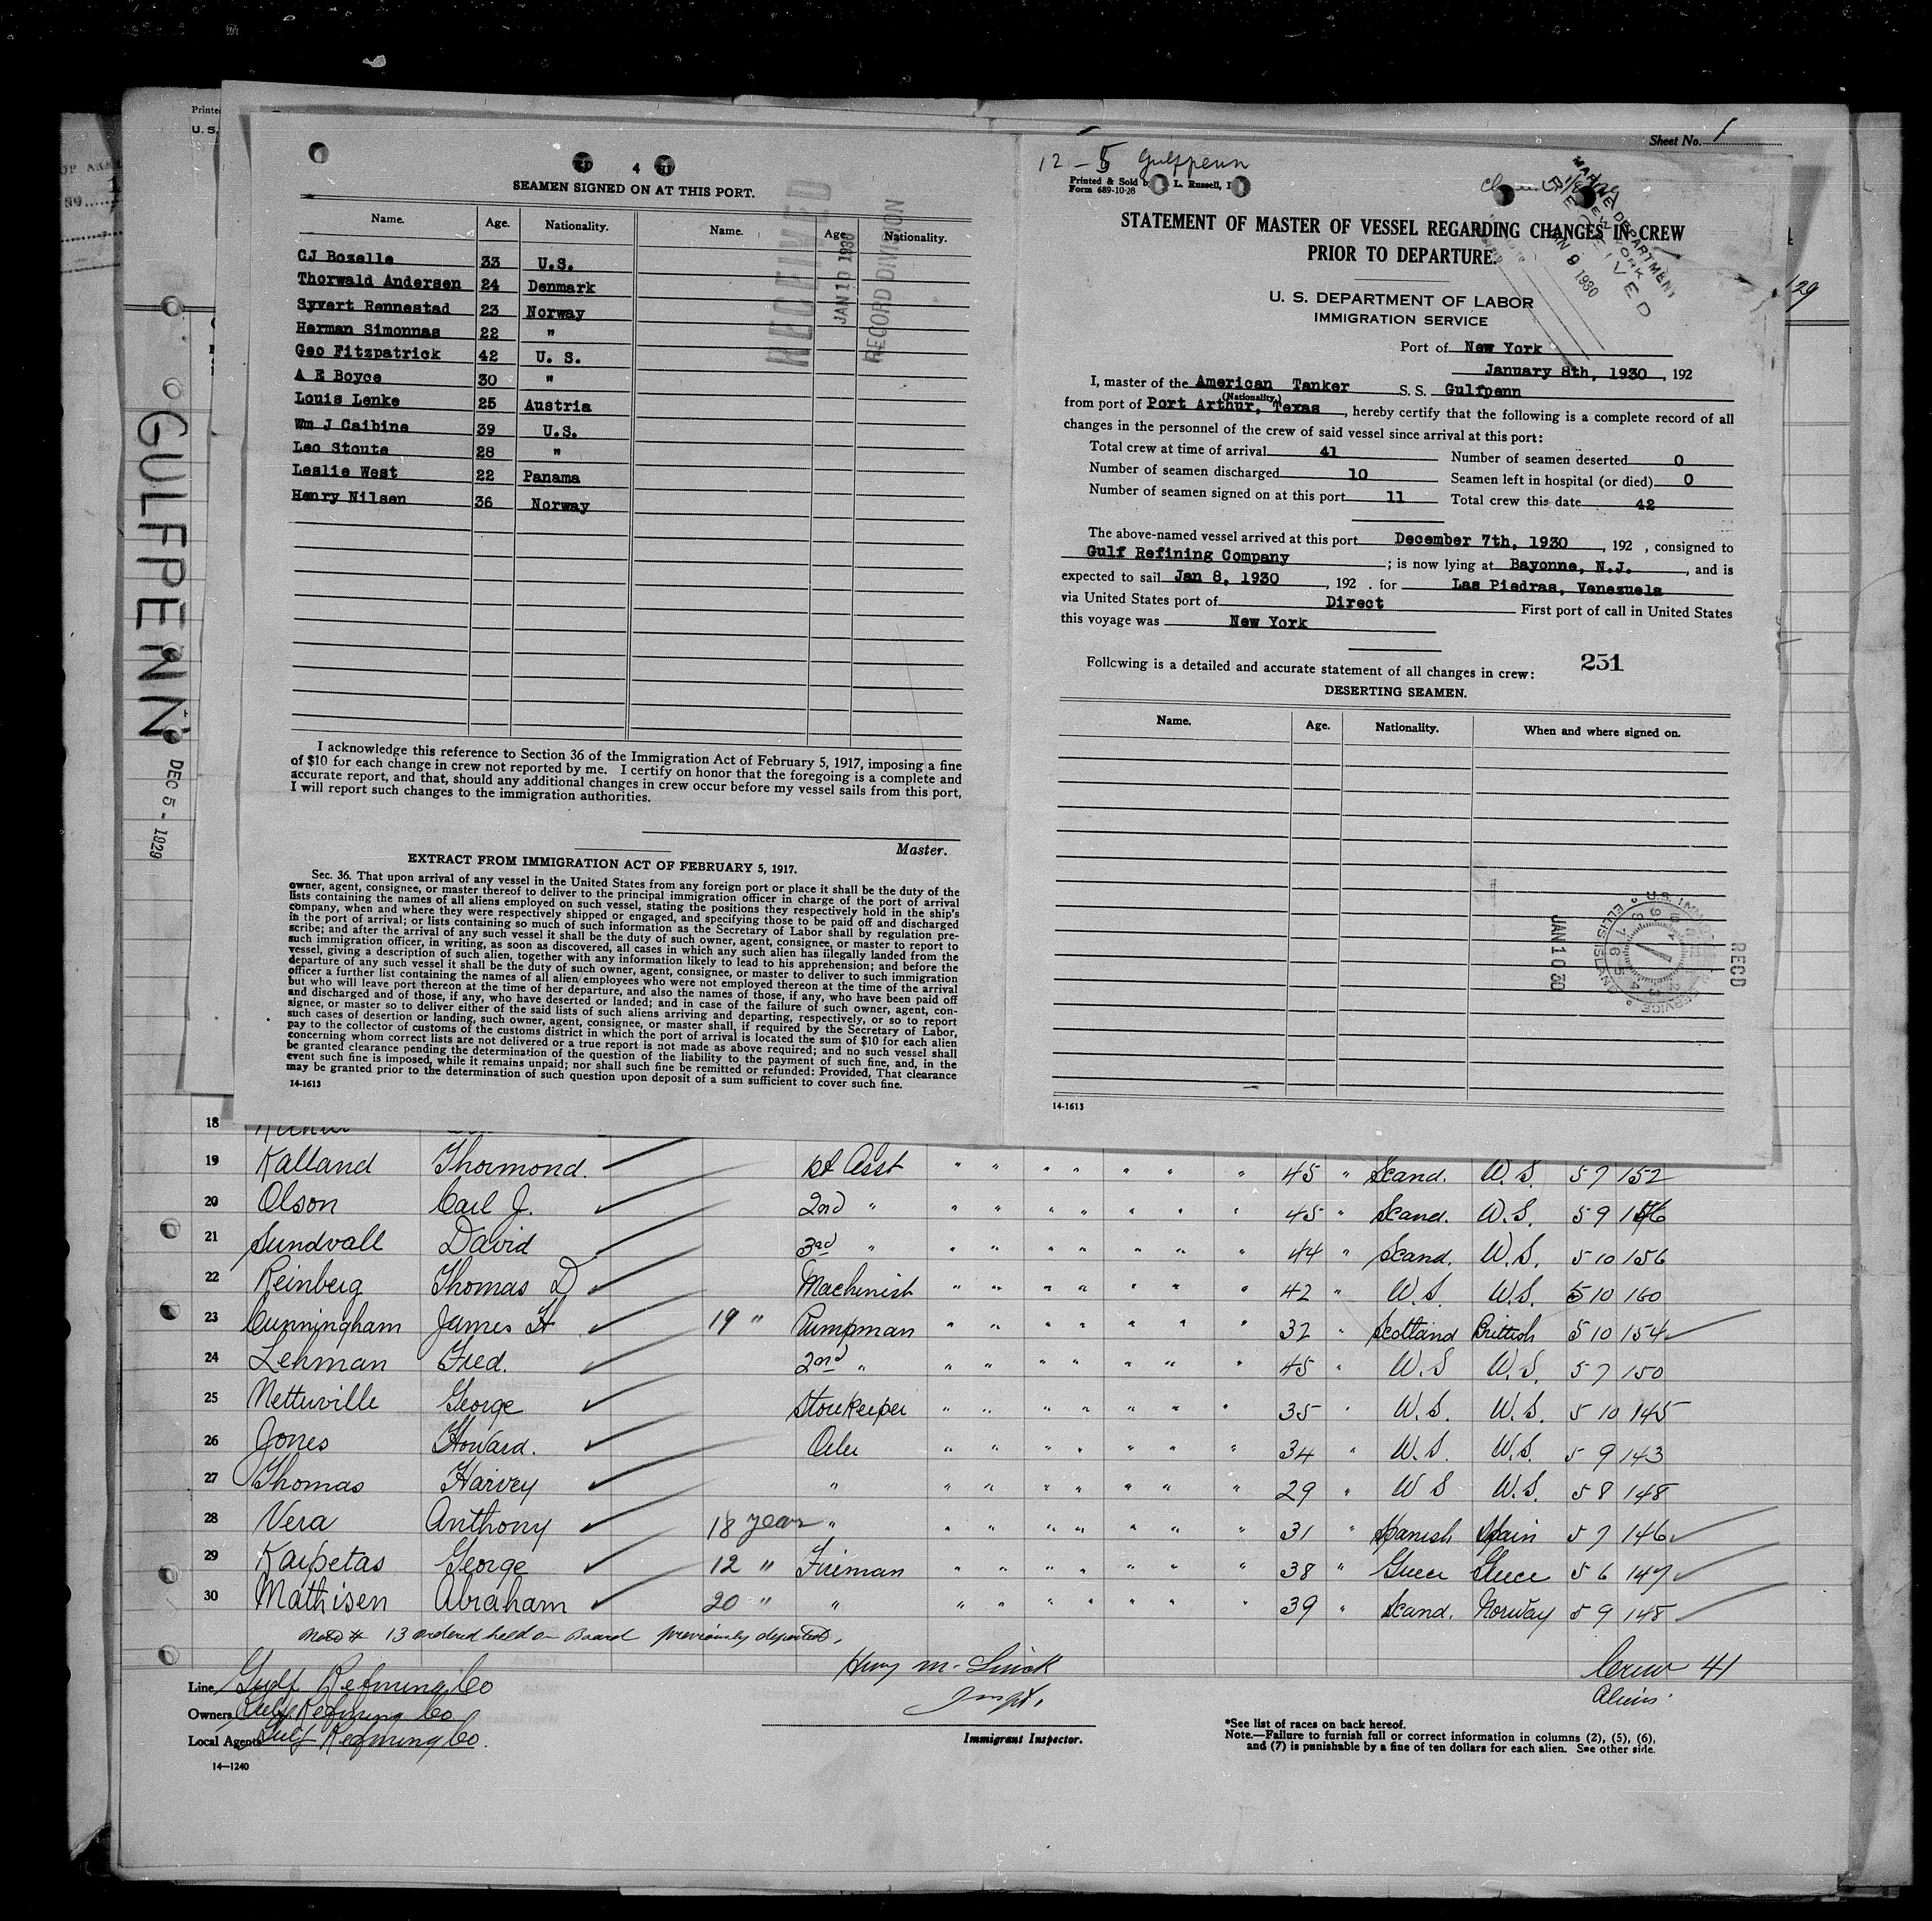 Printed
U. S.
Sheet No. 1
GULFPENN
DEC 5 - 1929
4
SEAMEN SIGNED ON AT THIS PORT.
Name. Age. Nationality. Name. Age. Nationality.
CJ Bozelle 33 U.S.
Thorwald Andersen 24 Denmark
Syvert Rennestad 23 Norway
Herman Simonnas 22 "
Geo Fitzpatrick 42 U. S.
A E Boyce 30 "
Louis Lenke 25 Austria
Wm J Caibine 39 U.S.
Leo Stoute 28 "
Leslie West 22 Panama
Henry Nilsen 36 Norway
RECEIVED
JAN 10 1930
RECORD DIVISION
I acknowledge this reference to Section 36 of the Immigration Act of February 5, 1917, imposing a fine
of $10 for each change in crew not reported by me. I certify on honor that the foregoing is a complete and
accurate report, and that, should any additional changes in crew occur before my vessel sails from this port,
I will report such changes to the immigration authorities.
Master.
EXTRACT FROM IMMIGRATION ACT OF FEBRUARY 5, 1917.
Sec. 36. That upon arrival of any vessel in the United States from any foreign port or place it shall be the duty of the
owner, agent, consignee, or master thereof to deliver to the principal immigration officer in charge of the port of arrival
lists containing the names of all aliens employed on such vessel, stating the positions they respectively hold in the ship's
company, when and where they were respectively shipped or engaged, and specifying those to be paid off and discharged
in the port of arrival; or lists containing so much of such information as the Secretary of Labor shall by regulation pre-
scribe; and after the arrival of any such vessel it shall be the duty of such owner, agent, consignee, or master to report to
such immigration officer, in writing, as soon as discovered, all cases in which any such alien has illegally landed from the
vessel, giving a description of such alien, together with any information likely to lead to his apprehension; and before the
departure of any such vessel it shall be the duty of such owner, agent, consignee, or master to deliver to such immigration
officer a further list containing the names of all alien employees who were not employed thereon at the time of the arrival
but who will leave port thereon at the time of her departure, and also the names of those, if any, who have been paid off
and discharged and of those, if any, who have deserted or landed; and in case of the failure of such owner, agent, con-
signee, or master so to deliver either of the said lists of such aliens arriving and departing, respectively, or so to report
such cases of desertion or landing, such owner, agent, consignee, or master shall, if required by the Secretary of Labor,
pay to the collector of customs of the customs district in which the port of arrival is located the sum of $10 for each alien
concerning whom correct lists are not delivered or a true report is not made as above required; and no such vessel shall
be granted clearance pending the determination of the question of the liability to the payment of such fine, and, in the
event such fine is imposed, while it remains unpaid; nor shall such fine be remitted or refunded: Provided, That clearance
may be granted prior to the determination of such question upon deposit of a sum sufficient to cover such fine.
14-1613
12 - 5 Gulfpenn
Printed & Sold b L. Russell, I
Form 689-10-28
MARINE DEPARTMENT
NEW YORK
RECEIVED
JAN 9 1930
STATEMENT OF MASTER OF VESSEL REGARDING CHANGES IN CREW
PRIOR TO DEPARTURE.
U. S. DEPARTMENT OF LABOR
IMMIGRATION SERVICE
Port of New York
January 8th, 1930, 192
I, master of the American Tanker S. S. Gulfpenn
(Nationality.)
from port of Port Arthur, Texas, hereby certify that the following is a complete record of all
changes in the personnel of the crew of said vessel since arrival at this port:
Total crew at time of arrival 41 Number of seamen deserted 0
Number of seamen discharged 10 Seamen left in hospital (or died) 0
Number of seamen signed on at this port 11 Total crew this date 42
The above-named vessel arrived at this port December 7th, 1930, 192 , consigned to
Gulf Refining Company ; is now lying at Bayonne, N.J., and is
expected to sail Jan 8, 1930, 192 . for Las Piedras, Venezuela
via United States port of Direct First port of call in United States
this voyage was New York
251
Following is a detailed and accurate statement of all changes in crew:
DESERTING SEAMEN.
Name. Age. Nationality. When and where signed on.
REC'D
U.S. IMMIGRATION SERVICE
ELLIS ISLAND
JAN 10 30
14-1613
18
19 Kalland Thormond. 1st Asst " " " " " " " 45 " Scand. U.S. 5 7 152
20 Olson Carl J. 2nd " " " " " " " " 45 " Scand. U.S. 5 9 156
21 Sundvall David 3rd " " " " " " " " 44 " Scand. U.S. 5 10 156
22 Reinberg Thomas D Machinist " " " " " " " 42 " U.S. U.S. 5 10 160
23 Cunningham James H 19 " Pumpman " " " " " " " 32 " Scotland British 5 10 154
24 Lehman Fred. 2nd " " " " " " " " 45 " U.S U.S. 5 7 150
25 Nettuville George Storekeeper " " " " " " " 35 " U.S. U.S. 5 10 145
26 Jones Howard. Oiler " " " " " " " 34 " U.S. U.S. 5 9 143
27 Thomas Harvey " " " " " " " " 29 " U S U.S. 5 8 148
28 Vera Anthony 18 year " " " " " " " " 31 " Spanish Spain 5 7 146
29 Karpetas George 12 " Fireman " " " " " " " 38 " Greece Greece 5 6 147
30 Mathisen Abraham 20 " " " " " " " " " 39 " Scand. Norway 5 9 148
Note # 13 ordered held on Board previously deported.
Crew 41
Aliens
Line Gulf Refining Co
Owners Gulf Refining Co
Local Agents Gulf Refining Co.
Inspt.
Immigrant Inspector.
*See list of races on back hereof.
Note.—Failure to furnish full or correct information in columns (2), (5), (6),
and (7) is punishable by a fine of ten dollars for each alien. See other side.
14—1240